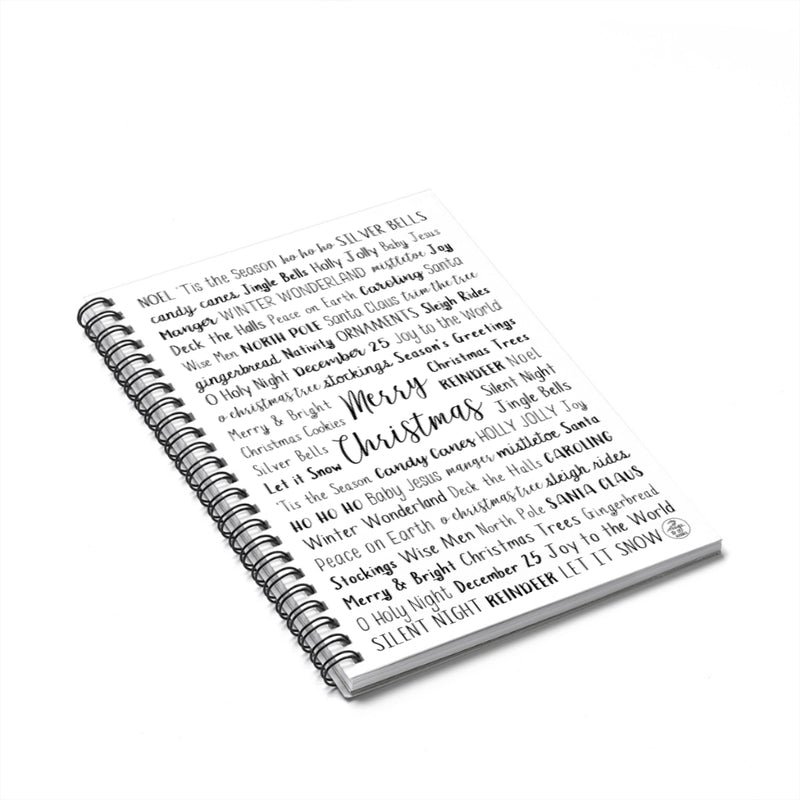 NOEL 'Tis the Season ho ho ho SILVER BELLS
candy canes Jingle Bells Holly Jolly Baby Jesus
Manger WINTER WONDERLAND mistletoe Joy
Deck the Halls Peace on Earth Caroling Santa
Wise Men NORTH POLE Santa Claus trim the tree
gingerbread Nativity ORNAMENTS Sleigh Rides
O Holy Night December 25 Joy to the World
o christmas tree stockings Season's Greetings
Merry & Bright Merry Christmas Trees
Christmas Cookies REINDEER Noel
Silver Bells Christmas Silent Night
Let it Snow Jingle Bells
'Tis the Season Candy Canes HOLLY JOLLY Joy
HO HO HO Baby Jesus manger mistletoe Santa
Winter Wonderland Deck the Halls CAROLING
Peace on Earth o christmas tree sleigh rides
Stockings Wise Men North Pole SANTA CLAUS
Merry & Bright Christmas Trees Gingerbread
O Holy Night December 25 Joy to the World
SILENT NIGHT REINDEER LET IT SNOW